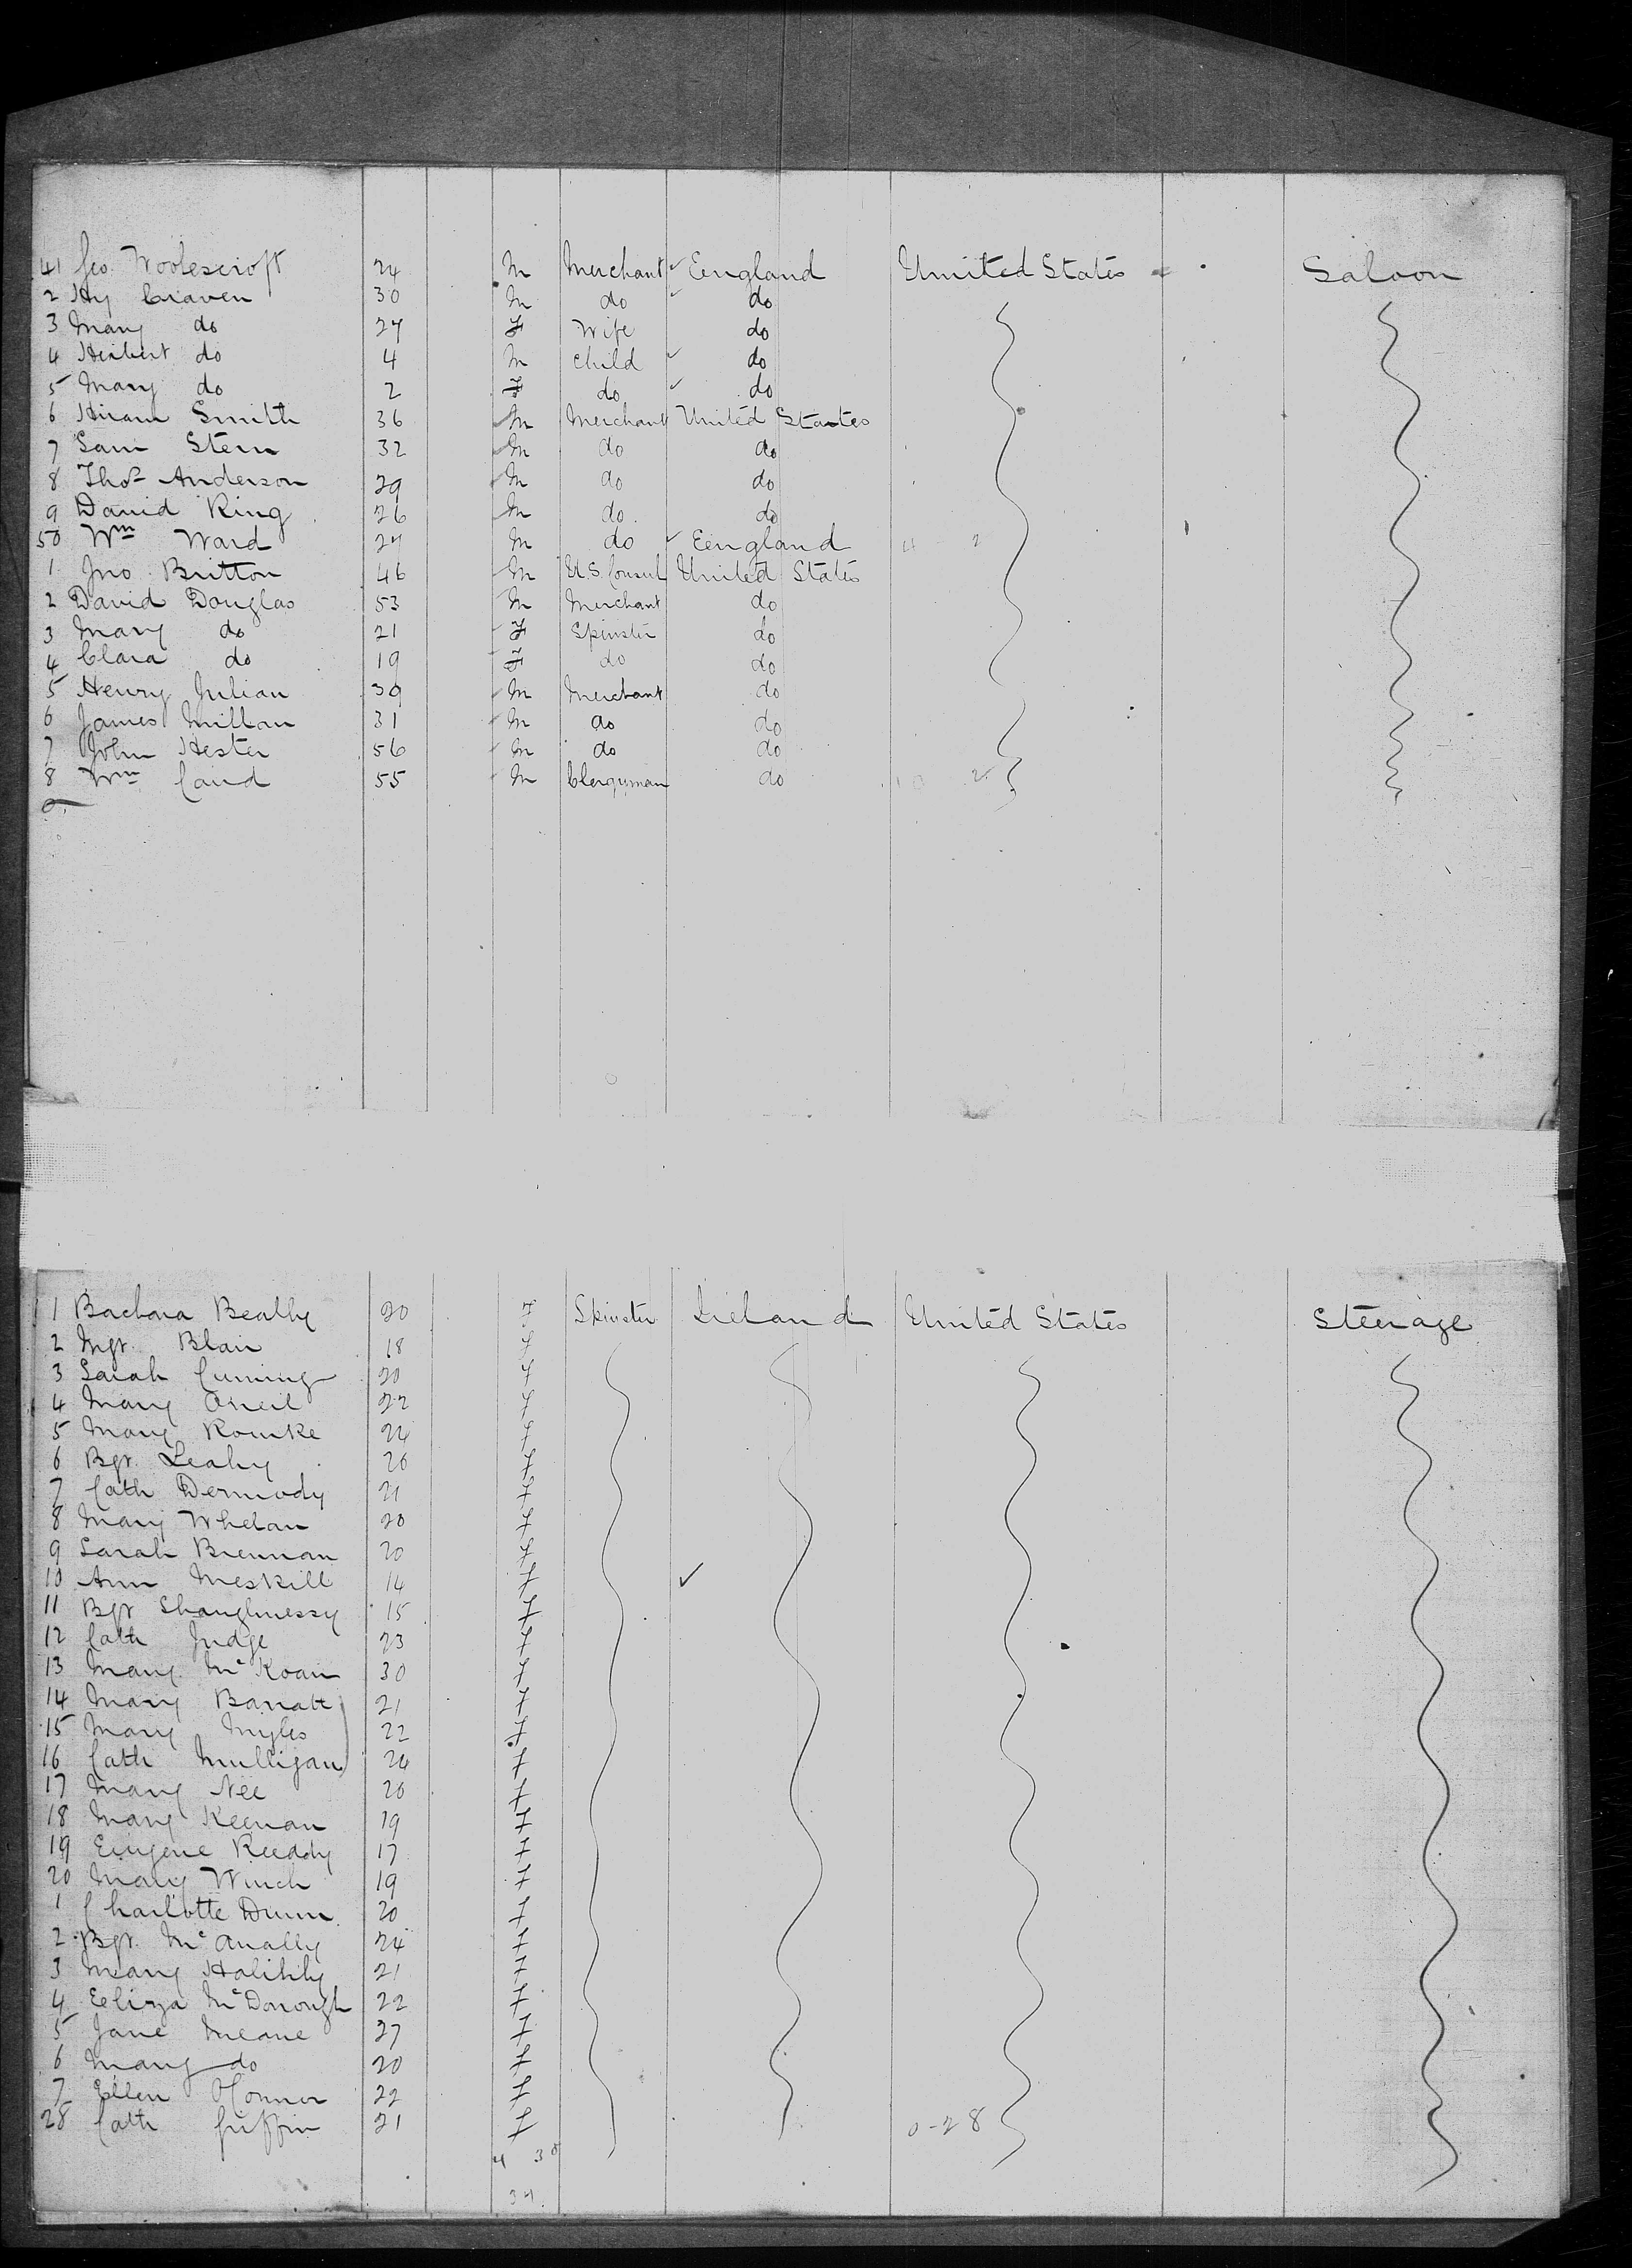 41 Geo. Woolescroft 24 M Merchant ✓ England United States Saloon
2 Hy Craven 30 M do ✓ do
3 Mary do 27 F Wife do
4 Herbert do 4 M child ✓ do
5 Mary do 2 F do ✓ do
6 Hiram Smith 36 M Merchant United States
7 Sam Stern 32 M do do
8 Thos Anderson 29 M do do
9 David King 26 M do. do
50 Wm Ward 27 M do ✓ England
1 Jno Britton 46 M U.S. Consul United States
2 David Douglas 53 M Merchant do
3 Mary do 21 F Spinster do
4 Clara do 19 F do do
5 Henry Julian 39 M Merchant do
6 James Millan 31 M do do
7 John Hester 56 M do do
8 Wm Caird 55 M Clergyman do
1 Barbara Beatty 20 F Spinster Ireland United States Steerage
2 Mgt. Blair 18 F
3 Sarah Cuming 20 F
4 Mary Oneil 22 F
5 Mary Rourke 24 F
6 Bgt. Leahy 26 F
7 Cath Dermody 21 F
8 Mary Whelan 20 F
9 Sarah Brennan 20 F
10 Ann Meskill 14 F ✓
11 Bgt Shaughnessy 15 F
12 Cath Judge 23 F
13 Mary McKoan 30 F
14 Mary Barratt 21 F
15 Mary Myles 22 F
16 Cath Mulligan 24 F
17 Mary Nee 20 F
18 Mary Keenan 19 F
19 Eugene Reeddy 17 F
20 Mary Winch 19 F
1 Charlotte Dunn 20 F
2 Bgt. McAnally 24 F
3 Mary 21 F
4 Eliza McDonough 22 F
5 Jane Meane 27 F
6 Mary do 20 F
7 Ellen OConnor 22 F
28 Cath Griffin 21 F 0-28